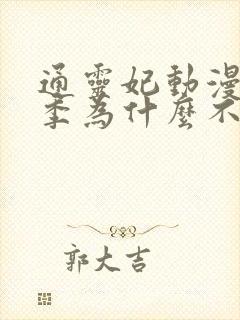 通靈妃動漫
季為什麼不
郭大吉